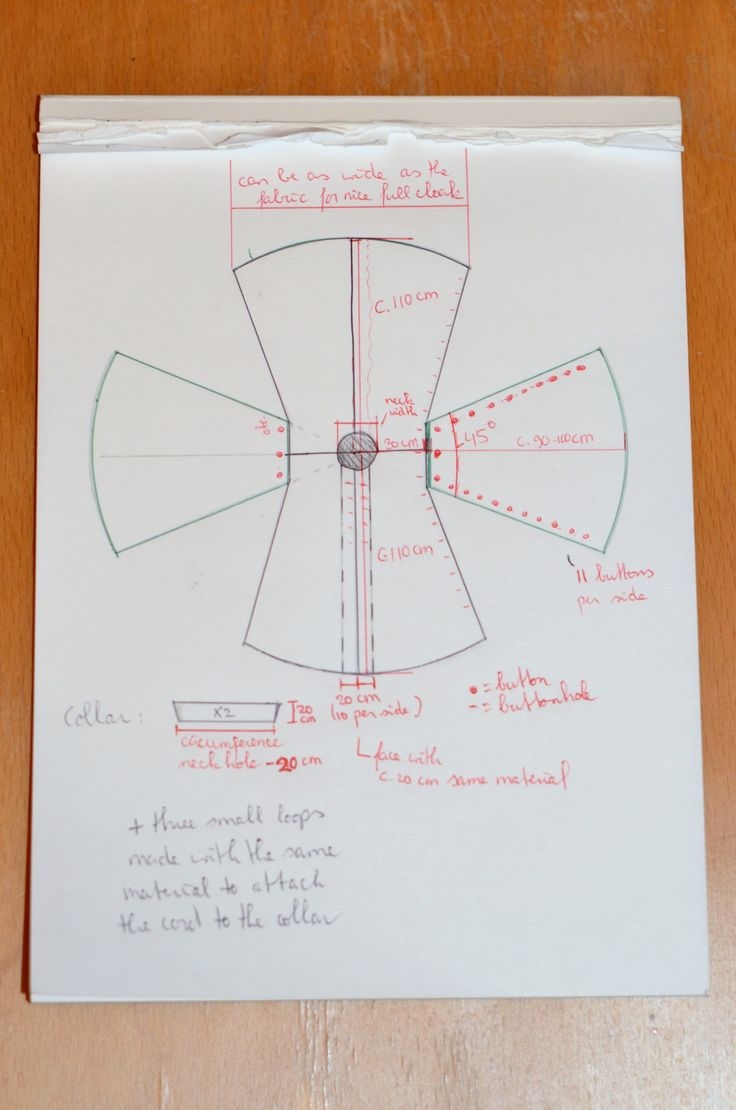 can be as wide as the
fabric for nice full cloak
c. 110 cm
neck
width
30 cm
45°
c. 90-100 cm
c. 110 cm
11 buttons
per side
20 cm
(10 per side)
• = button
- = buttonhole
Collar:
x2
20
cm
circumference
neck hole - 20 cm
face with
c. 20 cm same material
+ three small loops
made with the same
material to attach
the cord to the collar